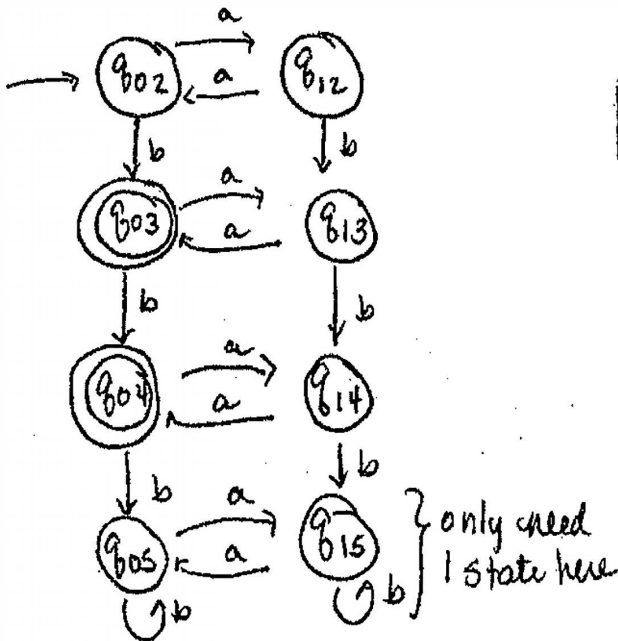 a
q02 q12
a
b b
a
q03 q13
a
b b
a
q04 q14
a
b b
a
q05 q15
a
b b
} only need
1 state here